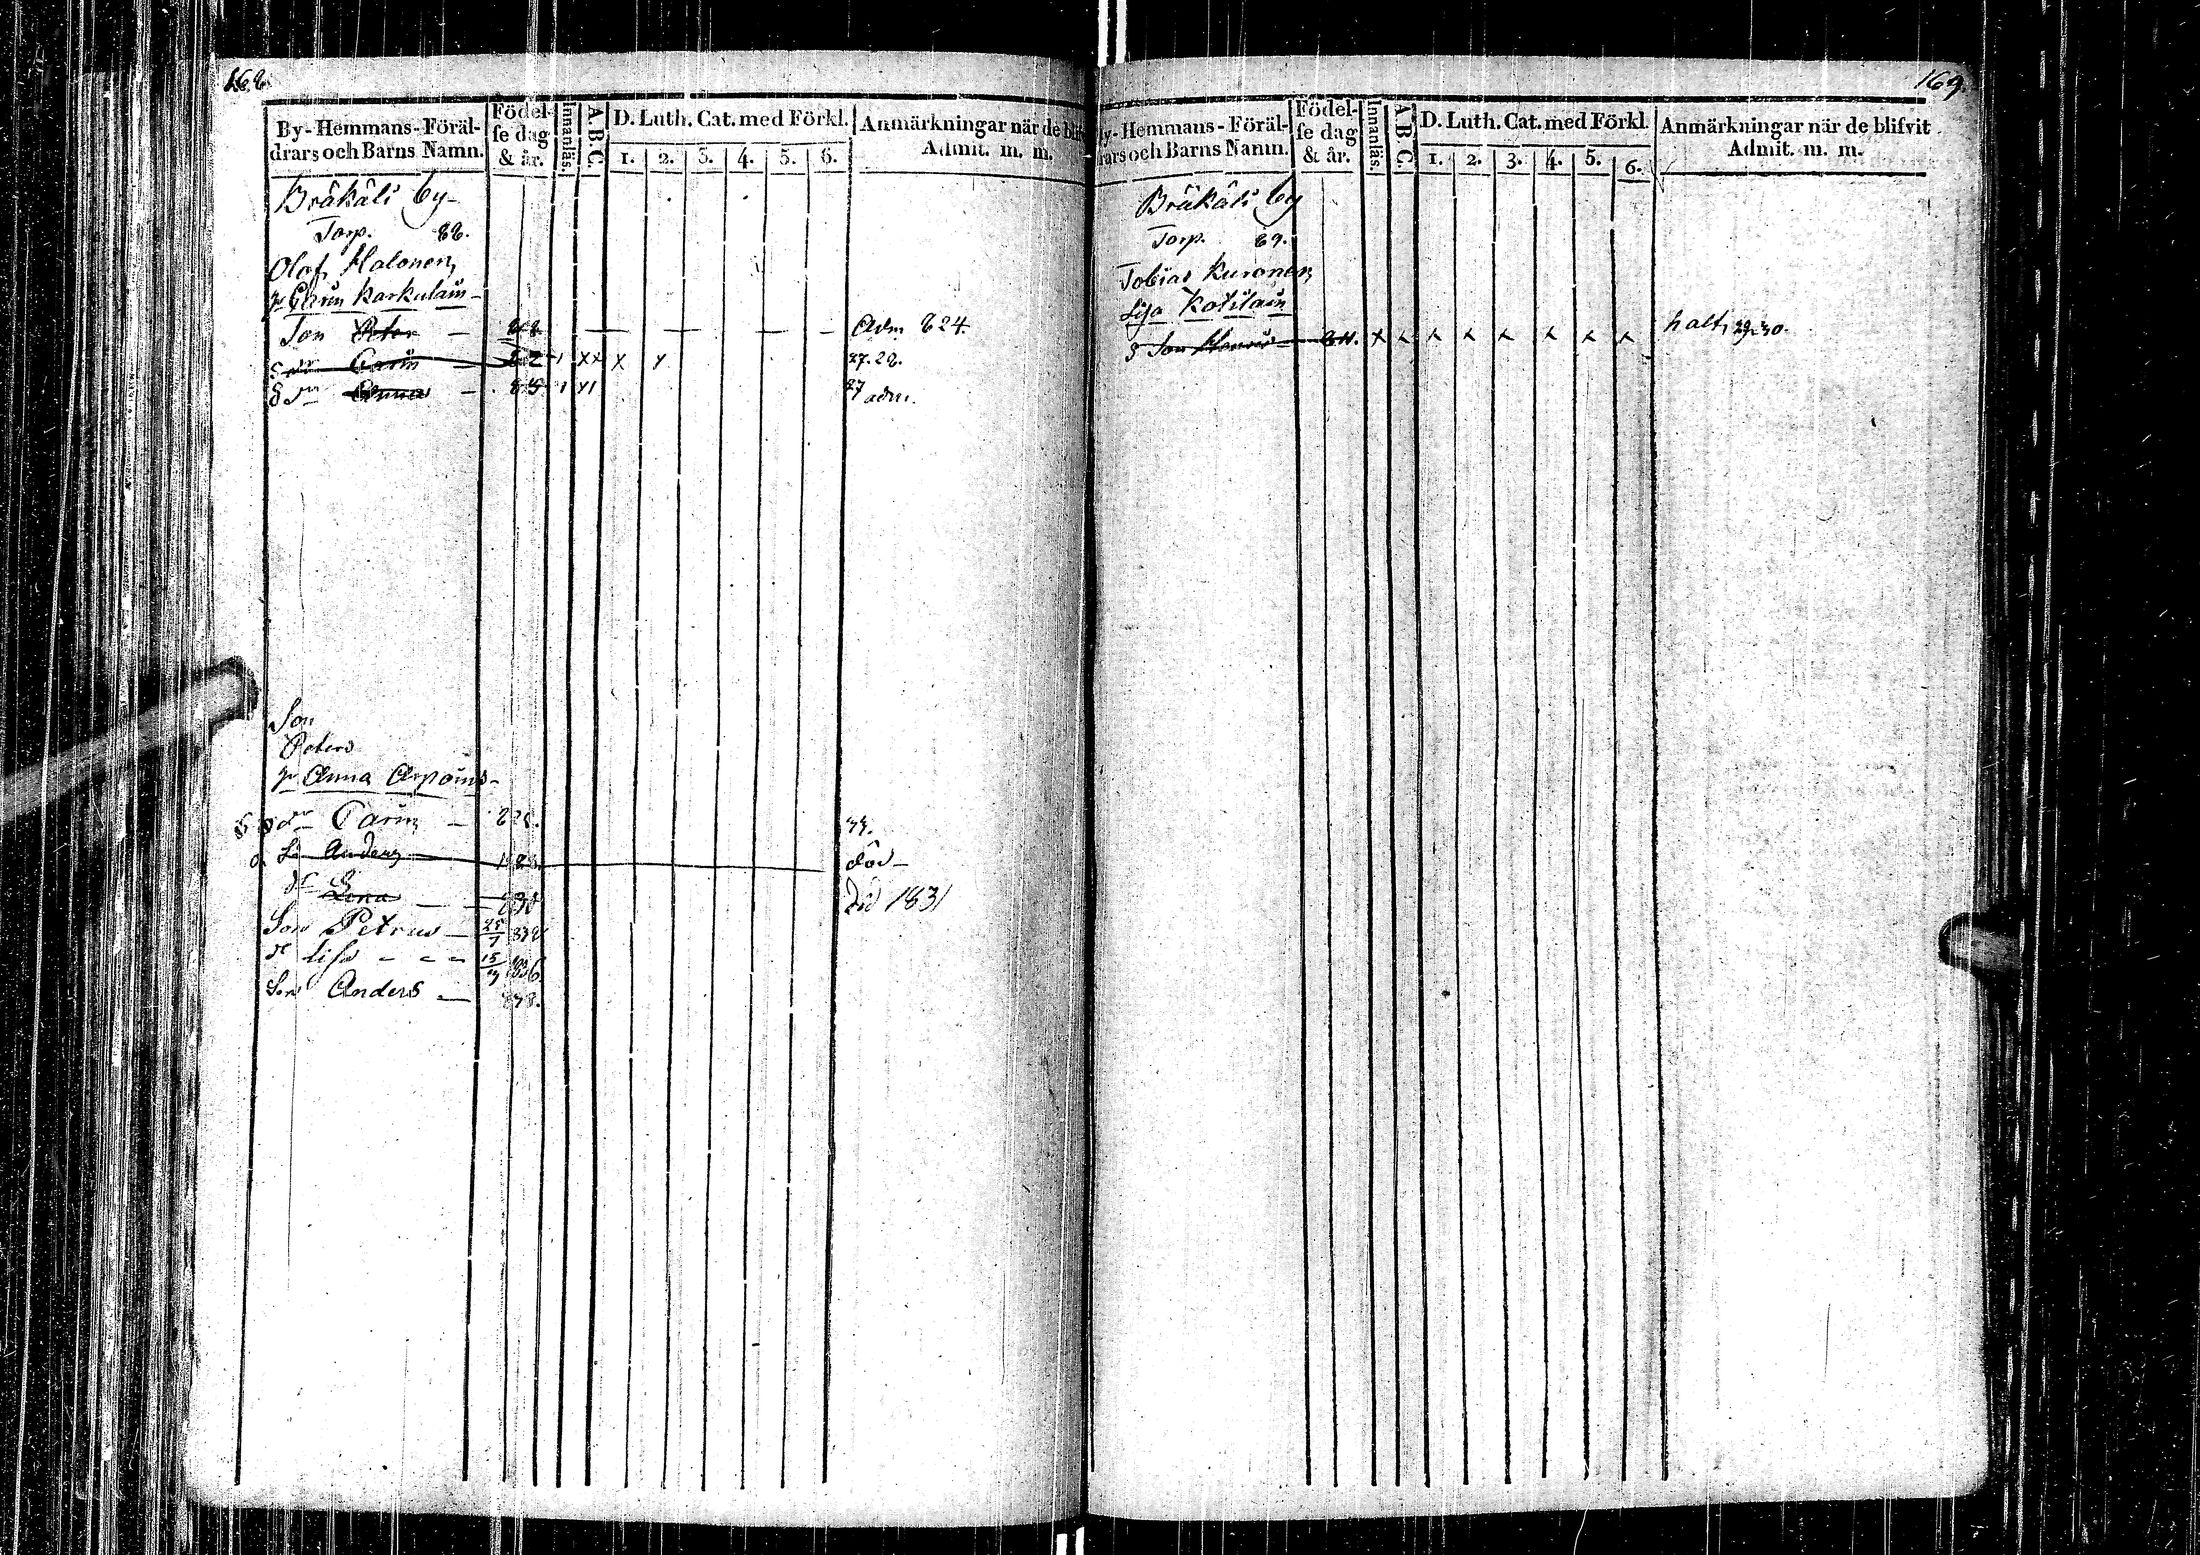 168.
By-Hemmans-Föräl-
drars och Barns Namn.
Födel-
se dag
& år.
Innanläs.
A.B.C.
D. Luth. Cat. med Förkl.
1. 2. 3. 4. 5. 6.
Anmärkningar när de blif
Admit. m. m.
Bräkäli by
Torp. 88.
Olof Halonen
Carin Karkulain
Son Peter — Adm 824
Carin — x x x x 27.28.
Anna — 27 adm.
Son
Peters
Anna Arpoins
Carin — 33.
Anders död
Lena — 830 död 1831
Son Petrus — 25/7 832
Lisa - - - 15/9 836
Son Anders — 838.
169.
By-Hemmans-Föräl-
drars och Barns Namn.
Födel-
se dag
& år.
Innanläs.
A B C.
D. Luth. Cat. med Förkl.
1. 2. 3. 4. 5. 6.
Anmärkningar när de blifvit
Admit. m. m.
Bräkäli by
Torp. 89.
Tobias Kuronen
Lisa Kotilain
Son x x x x x x x x halt, 29.30.